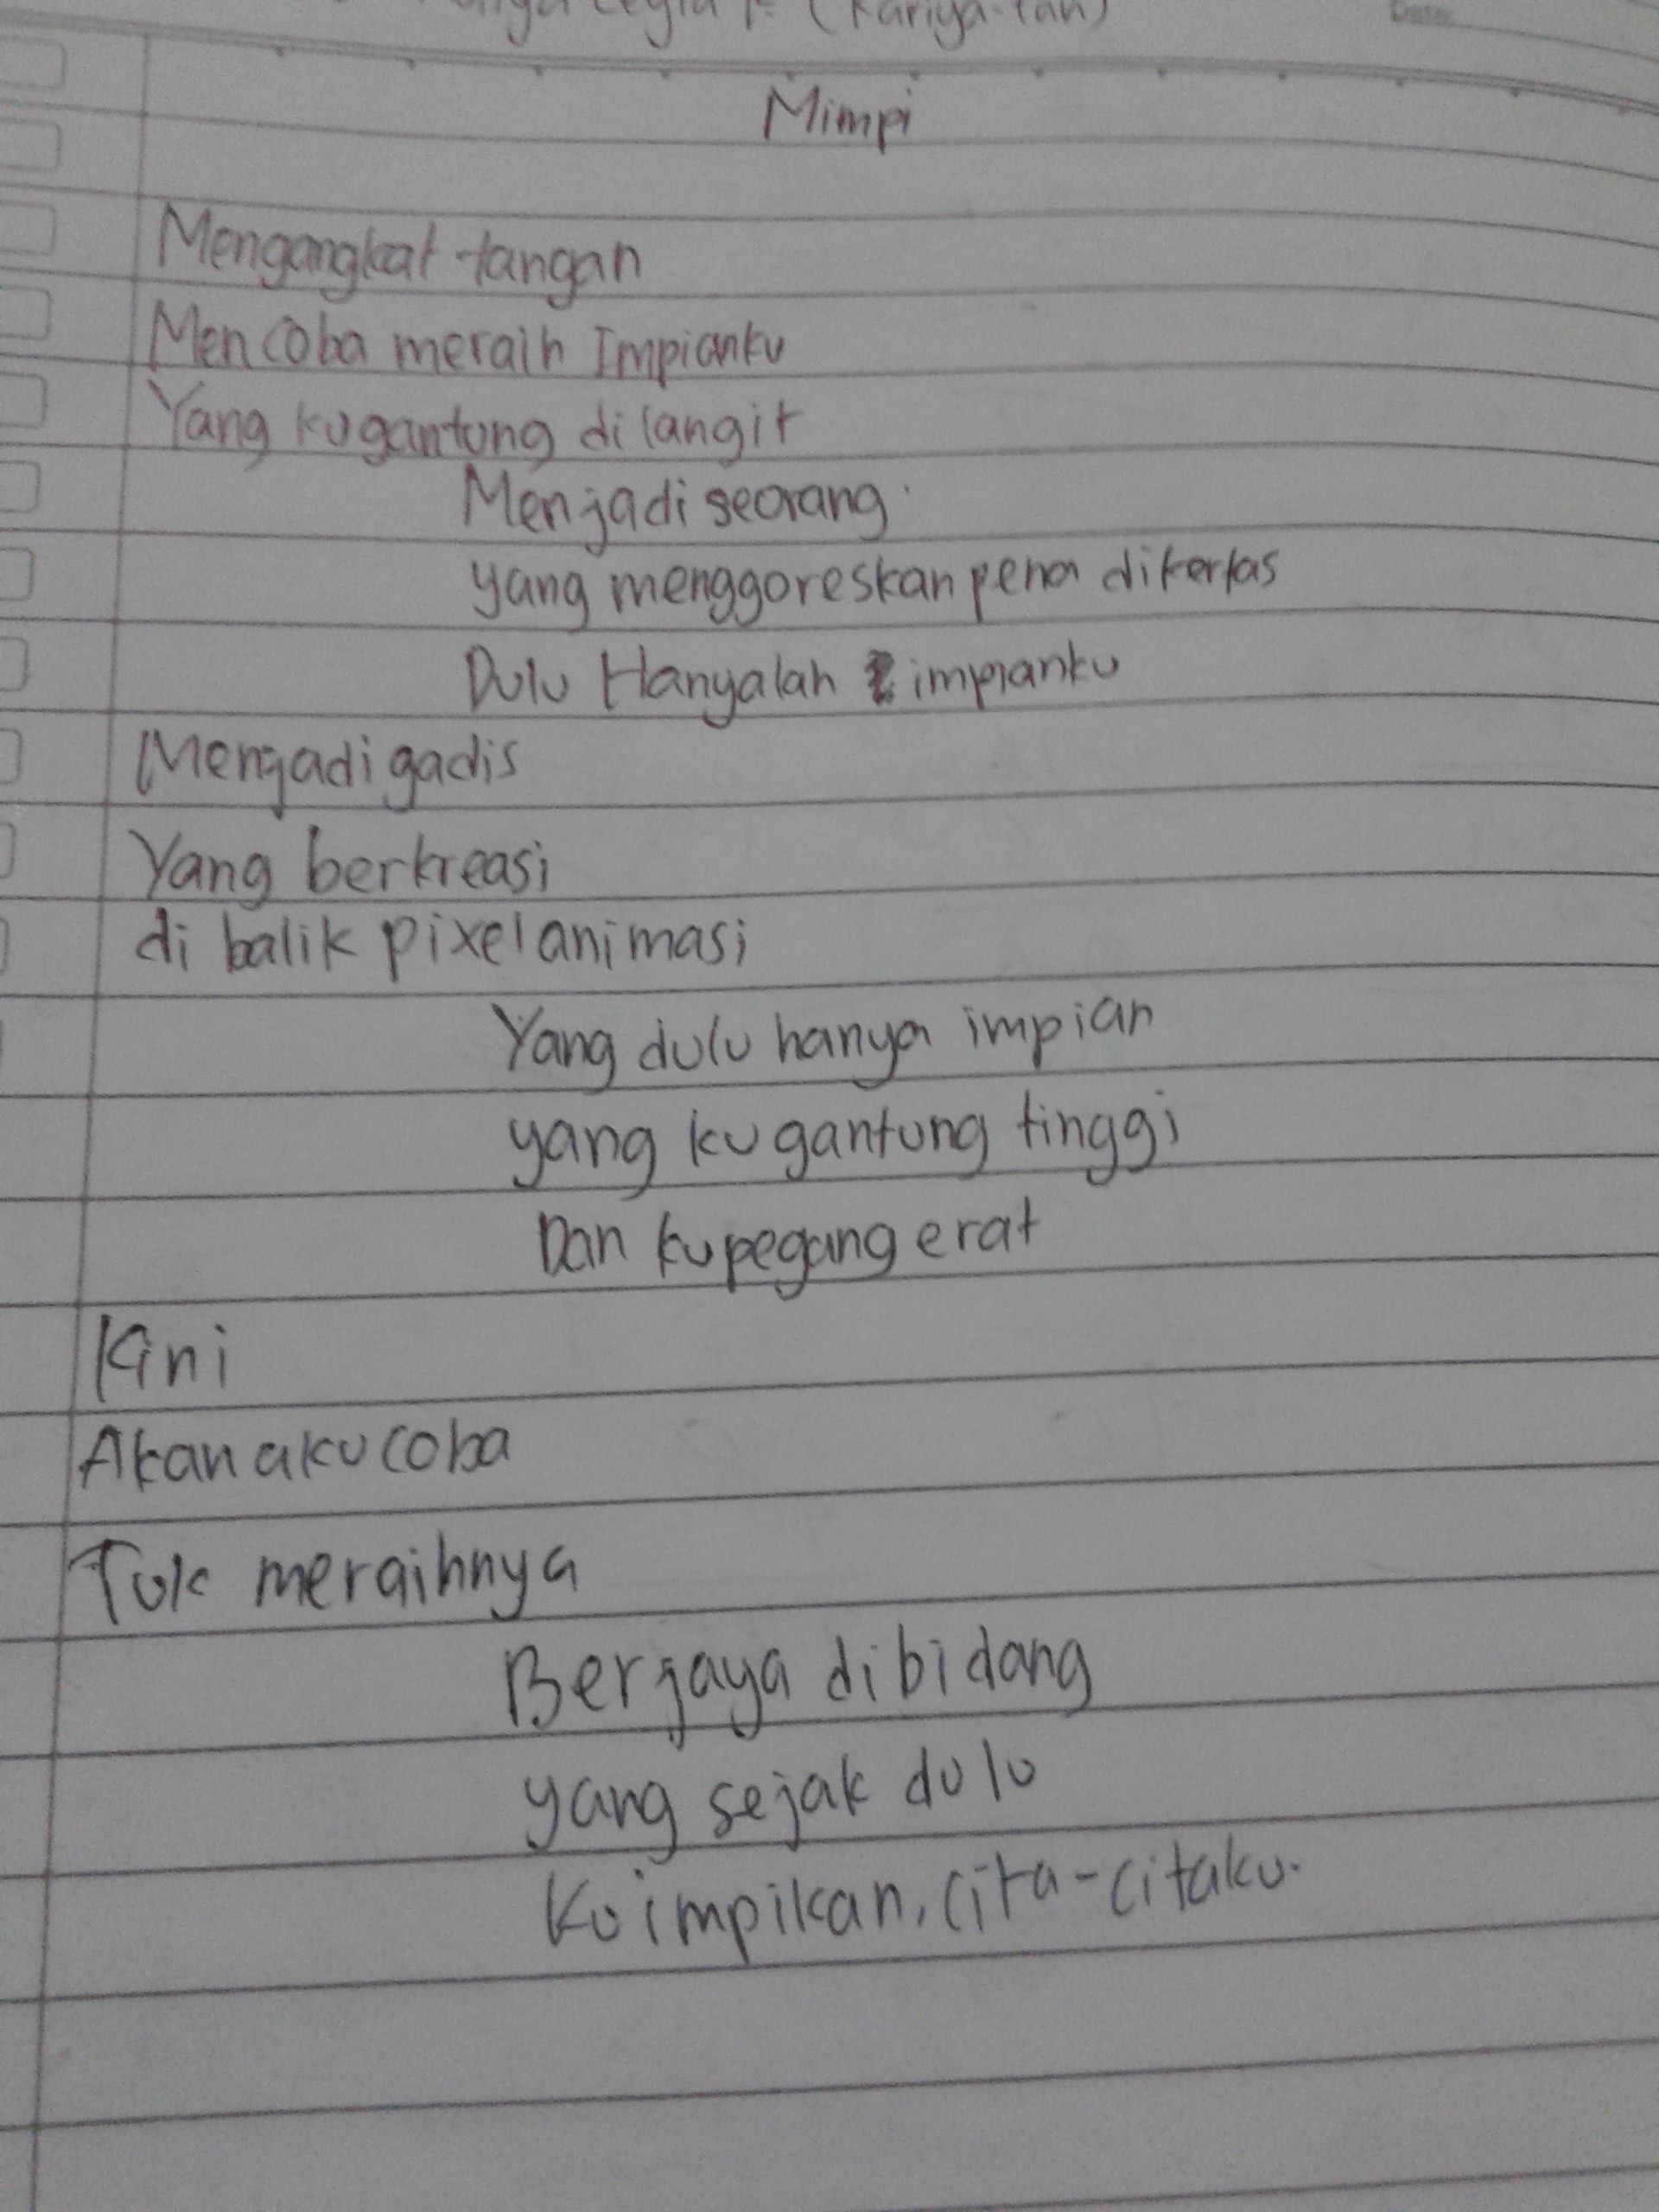 (Kariya-tan)
Date:
Mimpi
Mengangkat tangan
Mencoba meraih Impianku
Yang kugantung dilangit
Menjadi seorang
yang menggoreskan pena dikertas
Dulu Hanyalah impianku
Menjadi gadis
Yang berkreasi
di balik pixel animasi
Yang dulu hanya impian
yang kugantung tinggi
Dan kupegang erat
Kini
Akan aku coba
Tuk meraihnya
Berjaya dibidang
yang sejak dulu
Kuimpikan, cita-citaku.